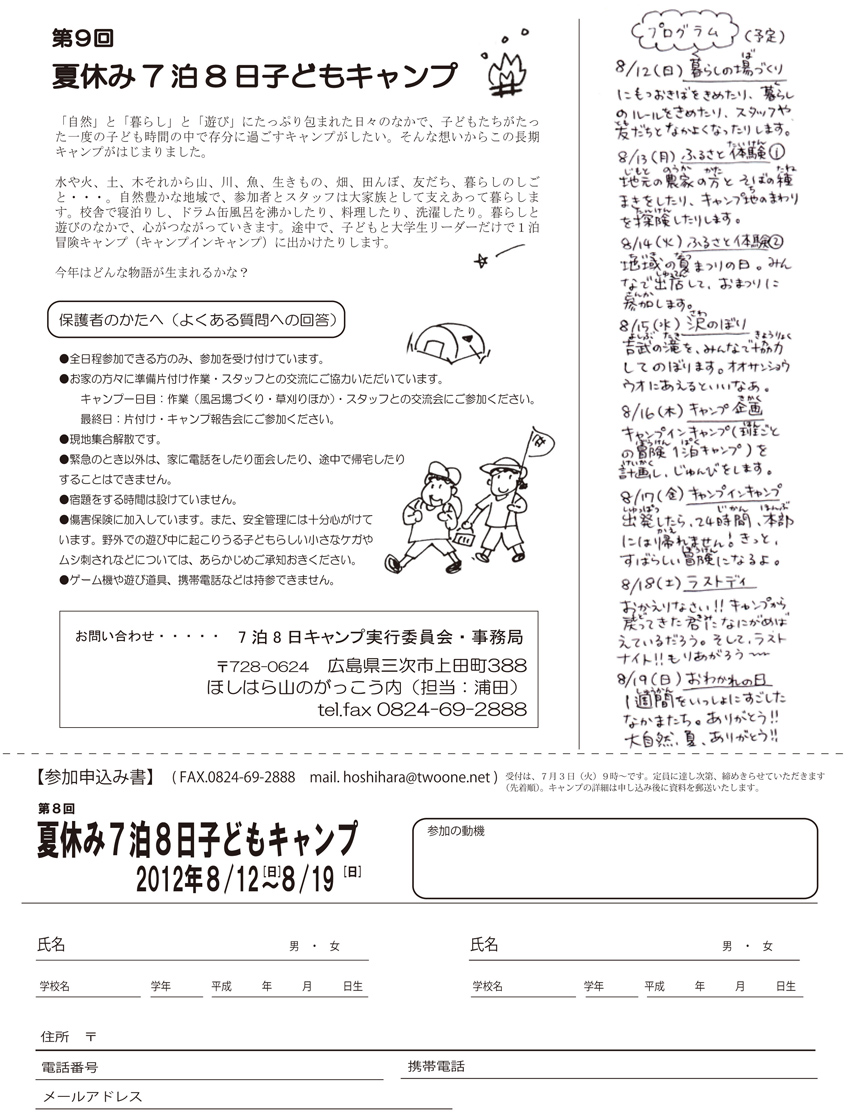 第9回
夏休み７泊８日子どもキャンプ
「自然」と「暮らし」と「遊び」にたっぷり包まれた日々のなかで、子どもたちがたっ
た一度の子ども時間の中で存分に過ごすキャンプがしたい。そんな想いからこの長期
キャンプがはじまりました。
水や火、土、木それから山、川、魚、生きもの、畑、田んぼ、友だち、暮らしのしご
と・・・。自然豊かな地域で、参加者とスタッフは大家族として支えあって暮らしま
す。校舎で寝泊りし、ドラム缶風呂を沸かしたり、料理したり、洗濯したり。暮らしと
遊びのなかで、心がつながっていきます。途中で、子どもと大学生リーダーだけで１泊
冒険キャンプ（キャンプインキャンプ）に出かけたりします。
今年はどんな物語が生まれるかな？
保護者のかたへ（よくある質問への回答）
●全日程参加できる方のみ、参加を受け付けています。
●お家の方々に準備片付け作業・スタッフとの交流にご協力いただいています。
キャンプ一日目：作業（風呂場づくり・草刈りほか）・スタッフとの交流会にご参加ください。
最終日：片付け・キャンプ報告会にご参加ください。
●現地集合解散です。
●緊急のとき以外は、家に電話をしたり面会したり、途中で帰宅したり
することはできません。
●宿題をする時間は設けていません。
●傷害保険に加入しています。また、安全管理には十分心がけて
います。野外での遊び中に起こりうる子どもらしい小さなケガや
ムシ刺されなどについては、あらかじめご承知おきください。
●ゲーム機や遊び道具、携帯電話などは持参できません。
お問い合わせ・・・・・　７泊８日キャンプ実行委員会・事務局
〒728-0624　広島県三次市上田町388
ほしはら山のがっこう内（担当：浦田）
tel.fax 0824-69-2888
プログラム（予定）
8/12（日）暮らしの場づくり
にもつおきばをきめたり、暮らし
のルールをきめたり、スタッフや
友だちとなかよくなったりします。
8/13（月）ふるさと体験①
地元の農家の方とそばの種
まきをしたり、キャンプ地のまわり
を探険したりします。
8/14（火）ふるさと体験②
地域の夏まつりの日。みん
なで出店して、おまつりに
参加します。
8/15（水）沢のぼり
吉武の滝を、みんなで協力
してのぼります。オオサンショウ
ウオにあえるといいなぁ。
8/16（木）キャンプ企画
キャンプインキャンプ（班ごと
の冒険1泊キャンプ）を
計画し、じゅんびをします。
8/17（金）キャンプインキャンプ
出発したら、24時間、本部
には帰れません！きっと、
すばらしい冒険になるよ。
8/18（土）ラストディ
おかえりなさい!!キャンプから
戻ってきた君だなにがめば
えているだろう。そして、ラスト
ナイト!!もりあがろう〜〜
8/19（日）おわかれの日
1週間をいっしょにすごした
なかまたち。ありがとう!!
大自然、夏、ありがとう!!
【参加申込み書】（FAX.0824-69-2888　mail. hoshihara@twoone.net）
受付は、７月３日（火）９時～です。定員に達し次第、締めきらせていただきます
（先着順）。キャンプの詳細は申し込み後に資料を郵送いたします。
第８回
夏休み７泊８日子どもキャンプ
2012年８/12［日］～８/19［日］
参加の動機
氏名　男・女
氏名　男・女
学校名　学年　平成　年　月　日生
学校名　学年　平成　年　月　日生
住所　〒
電話番号
携帯電話
メールアドレス